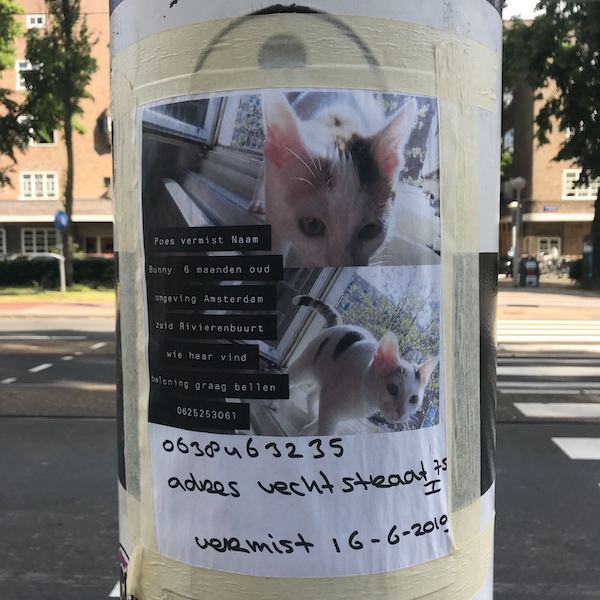 Poes vermist Naam
Bunny 6 maanden oud
omgeving Amsterdam
zuid Rivierenbuurt
wie haar vind
beloning graag bellen
0625253061
0638463235
adres vechtstraat 75
I
vermist 16-6-2019